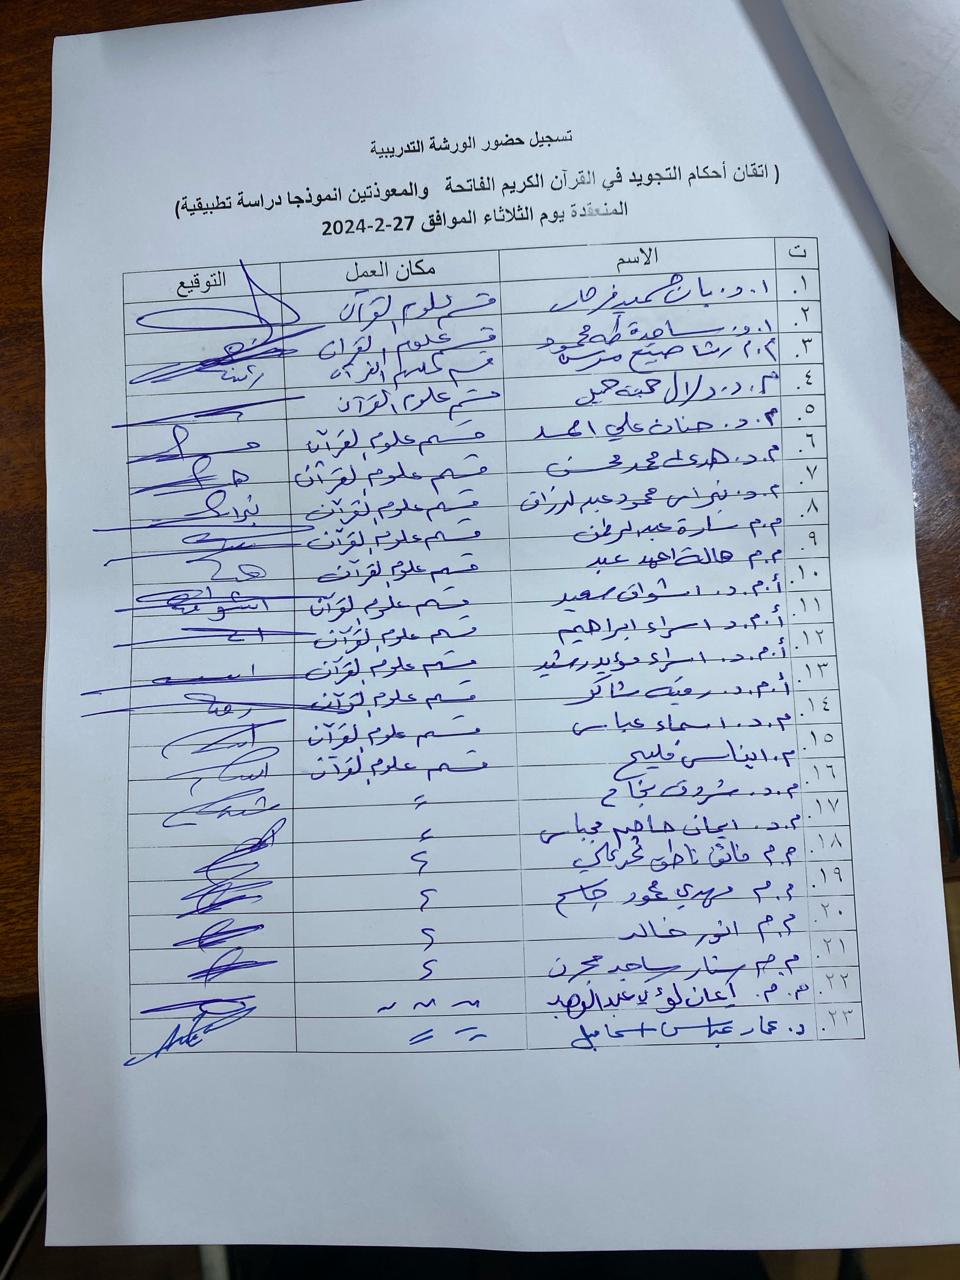 تسجيل حضور الورشة التدريبية
( اتقان أحكام التجويد في القرآن الكريم الفاتحة والمعوذتين انموذجا دراسة تطبيقية)
المنعقدة يوم الثلاثاء الموافق 27-2-2024
ت الاسم مكان العمل التوقيع
١. ا.د. بان حميد فرحان قسم علوم القرآن
٢. ا.د. ساجدة طه محمود قسم علوم القرآن
٣. م.م رشا صبيح قسم علوم القرآن رشا
٤. م.د. دلال حمبة جميل قسم علوم القرآن
٥. م.د. حنان علي احمد قسم علوم القرآن
٦. م.د. هدى محمد محسن قسم علوم القرآن
٧. م.د. نبراس محمود عبد الرزاق قسم علوم القرآن نبراس
٨. م.م سارة عبد الرحمن قسم علوم القرآن
٩. م.م هالة احمد عبد قسم علوم القرآن
١٠. أ.م.د. اشواق سعيد قسم علوم القرآن
١١. أ.م.د. اسراء ابراهيم قسم علوم القرآن
١٢. أ.م.د. اسراء مؤيد رشيد قسم علوم القرآن
١٣. أ.م.د. رقية شاكر قسم علوم القرآن
١٤. م.د. اسماء عباس قسم علوم القرآن
١٥. م. ايناس فليح قسم علوم القرآن
١٦. م.د. شروق نجاح =
١٧. م.د. ايمان جاسم عباس
١٨. م.م فائق ناطق محمد علي
١٩. م.م مهدي محمود جاسم
٢٠. م.م انور خالد
٢١. م.م ستار ساجد
٢٢. م.م. ايمان لؤي عبد الوهاب
٢٣. د. عمار عباس اسماعيل